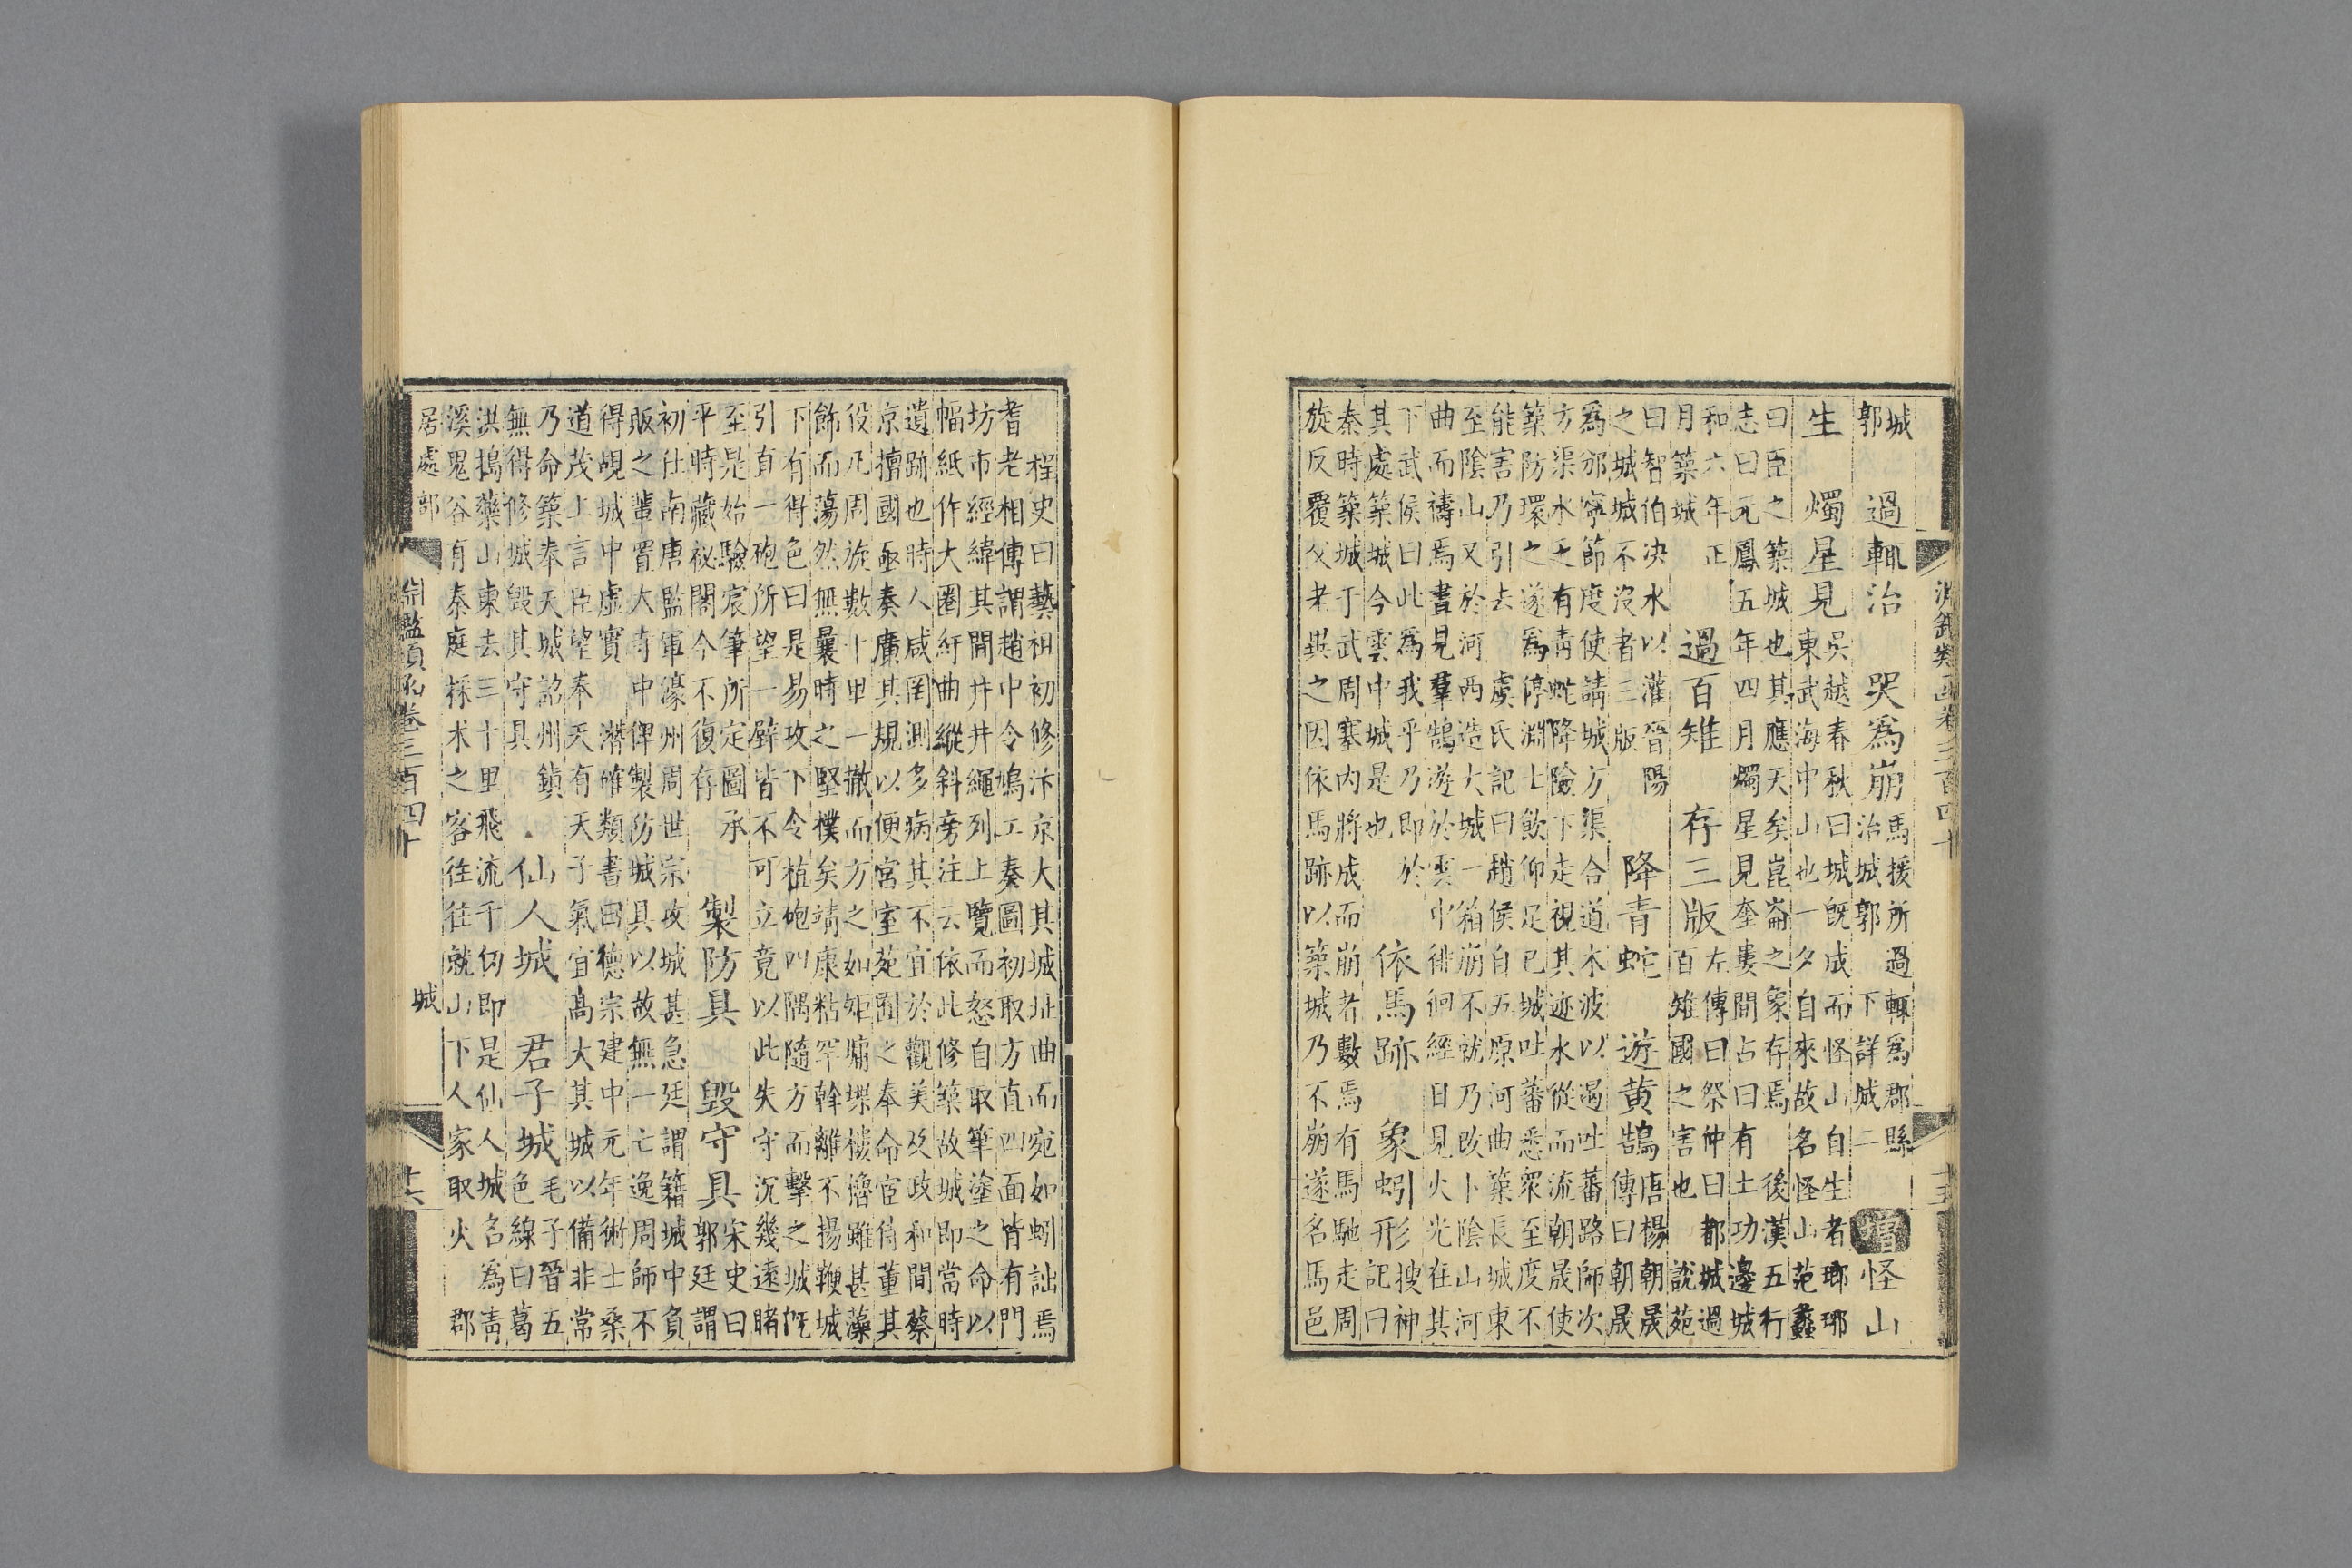 淵鑑類函卷三百四十
十五
城
郭
過輒治　哭爲崩
馬援所過輒爲郡縣
治城郭　下詳城二
增
怪山
生　燭星見
吳越春秋曰城既成而怪山自生者瑯琊
東武海中山也一夕自來故名怪山范蠡
曰臣之築城也其應天矣崑崙之象存焉　後漢五行
志曰元鳳五年四月燭星見奎婁間占曰有土功邊城
和六年正
月築城
過百雉　存三版
左傳曰祭仲曰都城過
百雉國之害也　說苑
曰智伯决水以灌晉陽
之城城不沒者三版
降青蛇　遊黄鵠
唐楊朝晟
傳曰朝晟
爲邠寧節度使請城方渠合道木波以遏吐蕃路師次
方渠水乏有青蛇降險下走視其迹水從而流朝晟使
築防環之遂爲停淵士飲仰足已城吐蕃悉衆至度不
能害乃引去　虞氏記曰趙侯自五原河曲築長城東
至陰山又於河西造大城一箱崩不就乃改卜陰山河
曲而禱焉晝見羣鵠遊於雲中徘徊經日見火光在其
下武侯曰此爲我乎乃即於
其處築城今雲中城是也
依馬跡　象蚓形
搜神
記曰
秦時築城于武周塞内將成而崩者數焉有馬馳走周
旋反覆父老異之因依馬跡以築城乃不崩遂名馬邑
桯史曰藝祖初修汴京大其城址曲而宛如蚓詘焉
耆老相傳謂趙中令鳩工奏圖初取方直四面皆有門
坊市經緯其間井井繩列上覽而怒自取筆塗之命以
幅紙作大圈紆曲縱斜旁注云依此修築故城即當時
遺跡也時人咸罔測多病其不宜於觀美及政和間蔡
京擅國亟奏廣其規以便宮室苑囿之奉命宦侍董其
役凡周旋數十里一撤而方之如矩墉堞樓櫓雖甚藻
飾而蕩然無曩時之堅樸矣靖康粘罕斡離不揚鞭城
下有得色曰是易攻下令植砲四隅隨方而擊之城既
引直一砲所望一壁皆不可立竟以此失守沉幾遠睹
至是始驗宸筆所定圖承
平時藏祕閣今不復存
製防具　毀守具
宋史曰
郭廷謂
初仕南唐監軍濠州周世宗攻城甚急廷謂籍城中負
販之輩置大寺中俾製防城具以故無一亡逸周師不
得覘城中虛實　潛確類書曰德宗建中元年術士桑
道茂上言臣望奉天有天子氣宜高大其城以備非常
乃命築奉天城詔州鎮
無得修城毀其守具
仙人城　君子城
毛子晉五
色線曰葛
洪搗藥山東去三十里飛流千仞即是仙人城名爲靑
溪鬼谷有秦庭採术之客往往就山下人家取火　郡
居處部
城
淵鑑類函卷三百四十
十六